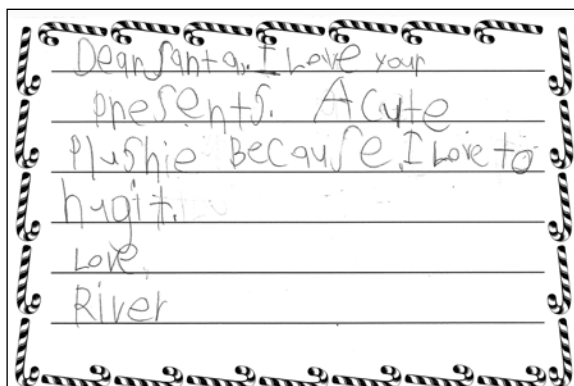 Dear Santa, I Love your
presents. A cute
Plushie Because I Love to
hug it.
Love,
River